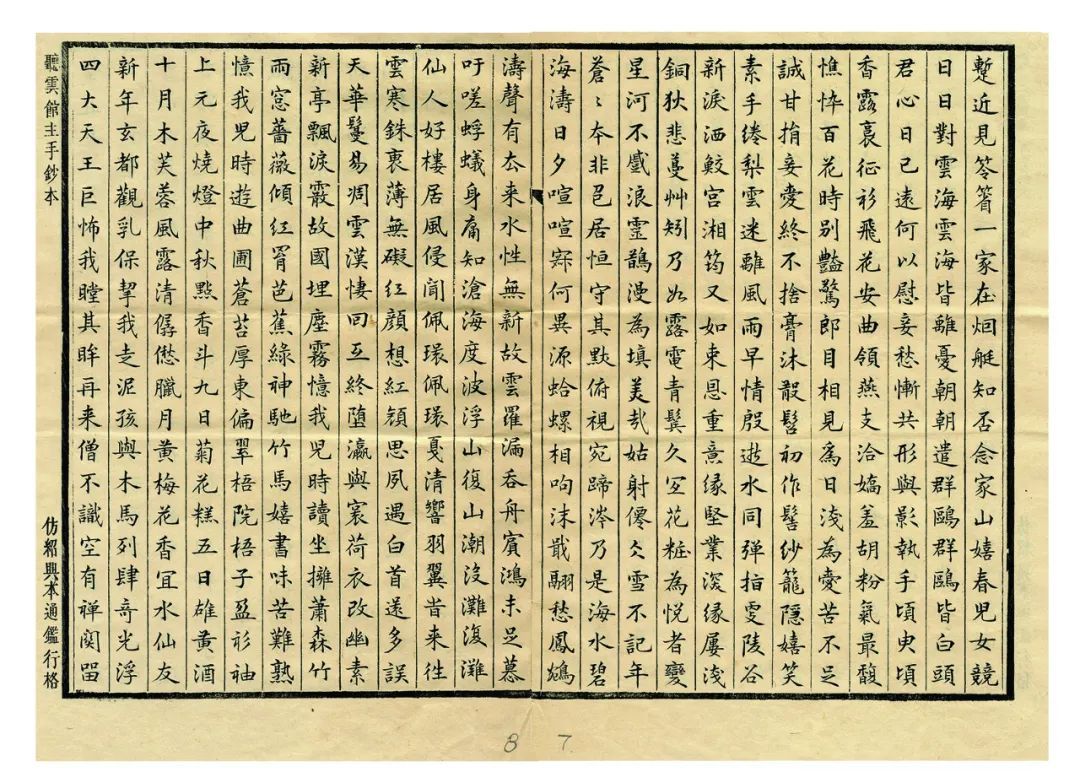 蹔近見笭箵一家在烟艇知否念家山嬉春兒女競
日日對雲海雲海皆離憂朝朝遣群鷗群鷗皆白頭
君心日已遠何以慰妾愁慚共形與影執手頃臾頃
香露裛征衫飛花安曲領燕支洽嬌羞胡粉氣最馥
憔悴百花時别豔驚郎目相見為日淺為愛苦不足
誠甘捐妾愛終不捨膏沐骰髻初作髻紗籠隱嬉笑
素手綣梨雲迷離風雨早情殷逝水同彈指雯陵谷
新淚洒鮫宮湘筠又如束恩重意緣堅業深緣屢淺
銅狄悲蔓艸矧乃如露電青鬢久空花粧為悅者變
星河不戲浪靈鵲漫為填美哉姑射僊仌雪不記年
蒼〻夲非色居恒守其默俯視宛蹄涔乃是海水碧
海濤日夕喧喧寂何異源蛤螺相呴沫戢翮愁鳳鵷
濤聲有厺来水性無新故雲羅漏吞舟賓鴻未足慕
吁嗟蜉蟻身庸知滄海度波浮山復山潮沒灘復灘
仙人好樓居風侵聞佩環佩環戛清響羽翼昔来往
雲寒銖衷薄無礙紅顏想紅頰思夙遇白首送多誤
天華鬘易凋雲漢悽回互終墮瀛與寰荷衣改幽素
新亭飄淚霰故國埋塵霧憶我兒時讀坐擁蕭森竹
雨窓薔薇傾紅罥芭蕉綠神馳竹馬嬉書味苦難熟
憶我兒時遊曲圃蒼苔厚東偏翠梧院梧子盈衫袖
上元夜燒燈中秋點香斗九日菊花糕五日雄黃酒
十月木芙蓉風露清孱僽臘月黃梅花香宜水仙友
新年玄都觀乳保挈我走泥孩與木馬列肆奇光浮
四大天王巨怖我瞠其眸再来僧不識空有禅関留
聽雲館主手鈔本
仿紹興本通鑑行格
8 7